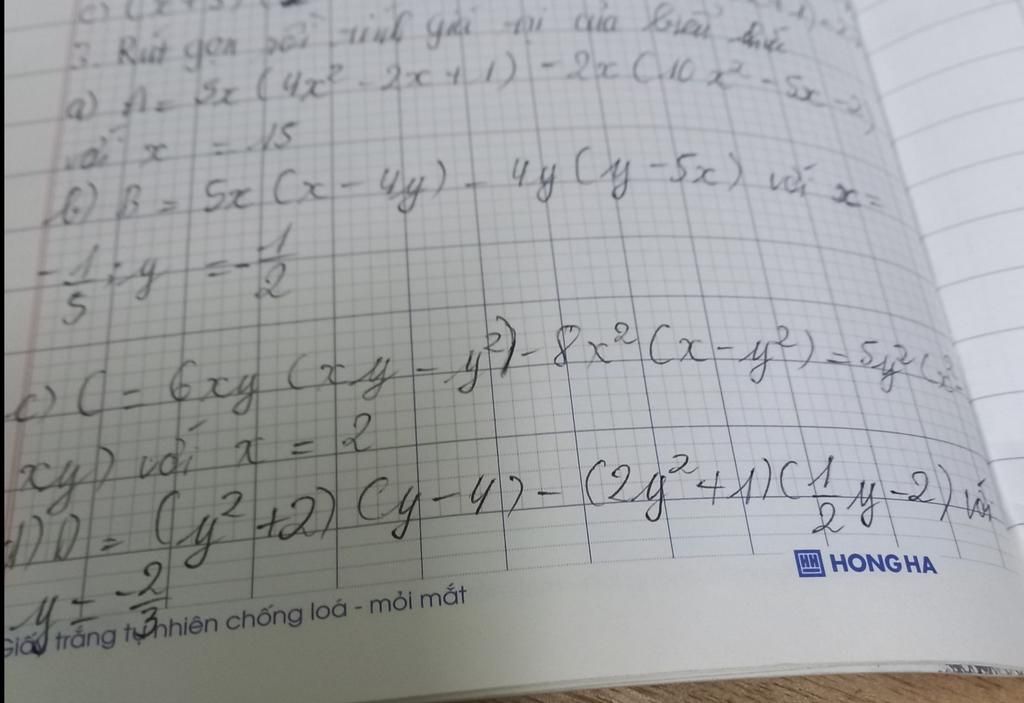 3. Rút gọn rồi tính giá trị của biểu thức
a) A = 5x (4x² - 2x + 1) - 2x (10x² - 5x - 2)
với x = 15
b) B = 5x (x - 4y) - 4y (y - 5x) với x =
-1/5 ; y = -1/2
c) C = 6xy (xy - y²) - 8x² (x - y²) = 5y² (x² -
xy) với x = 2
d) D = (y² + 2) (y - 4) - (2y² + 1) (1/2 y - 2) với
HONG HA
y = -2/3
Giấy trắng tự nhiên chống loá - mỏi mắt